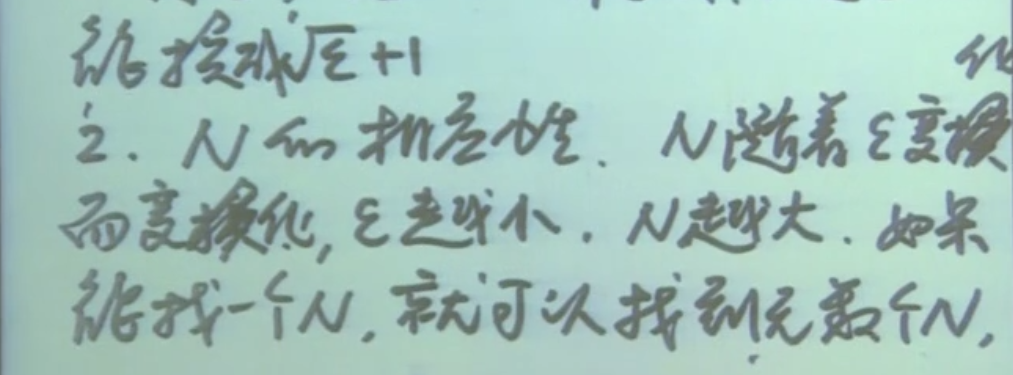 能换成√ε+1
2. N的相应性. N随着ε变换
而变化, ε越小. N越大. 如果
能找一个N, 就可以找到无数个N,